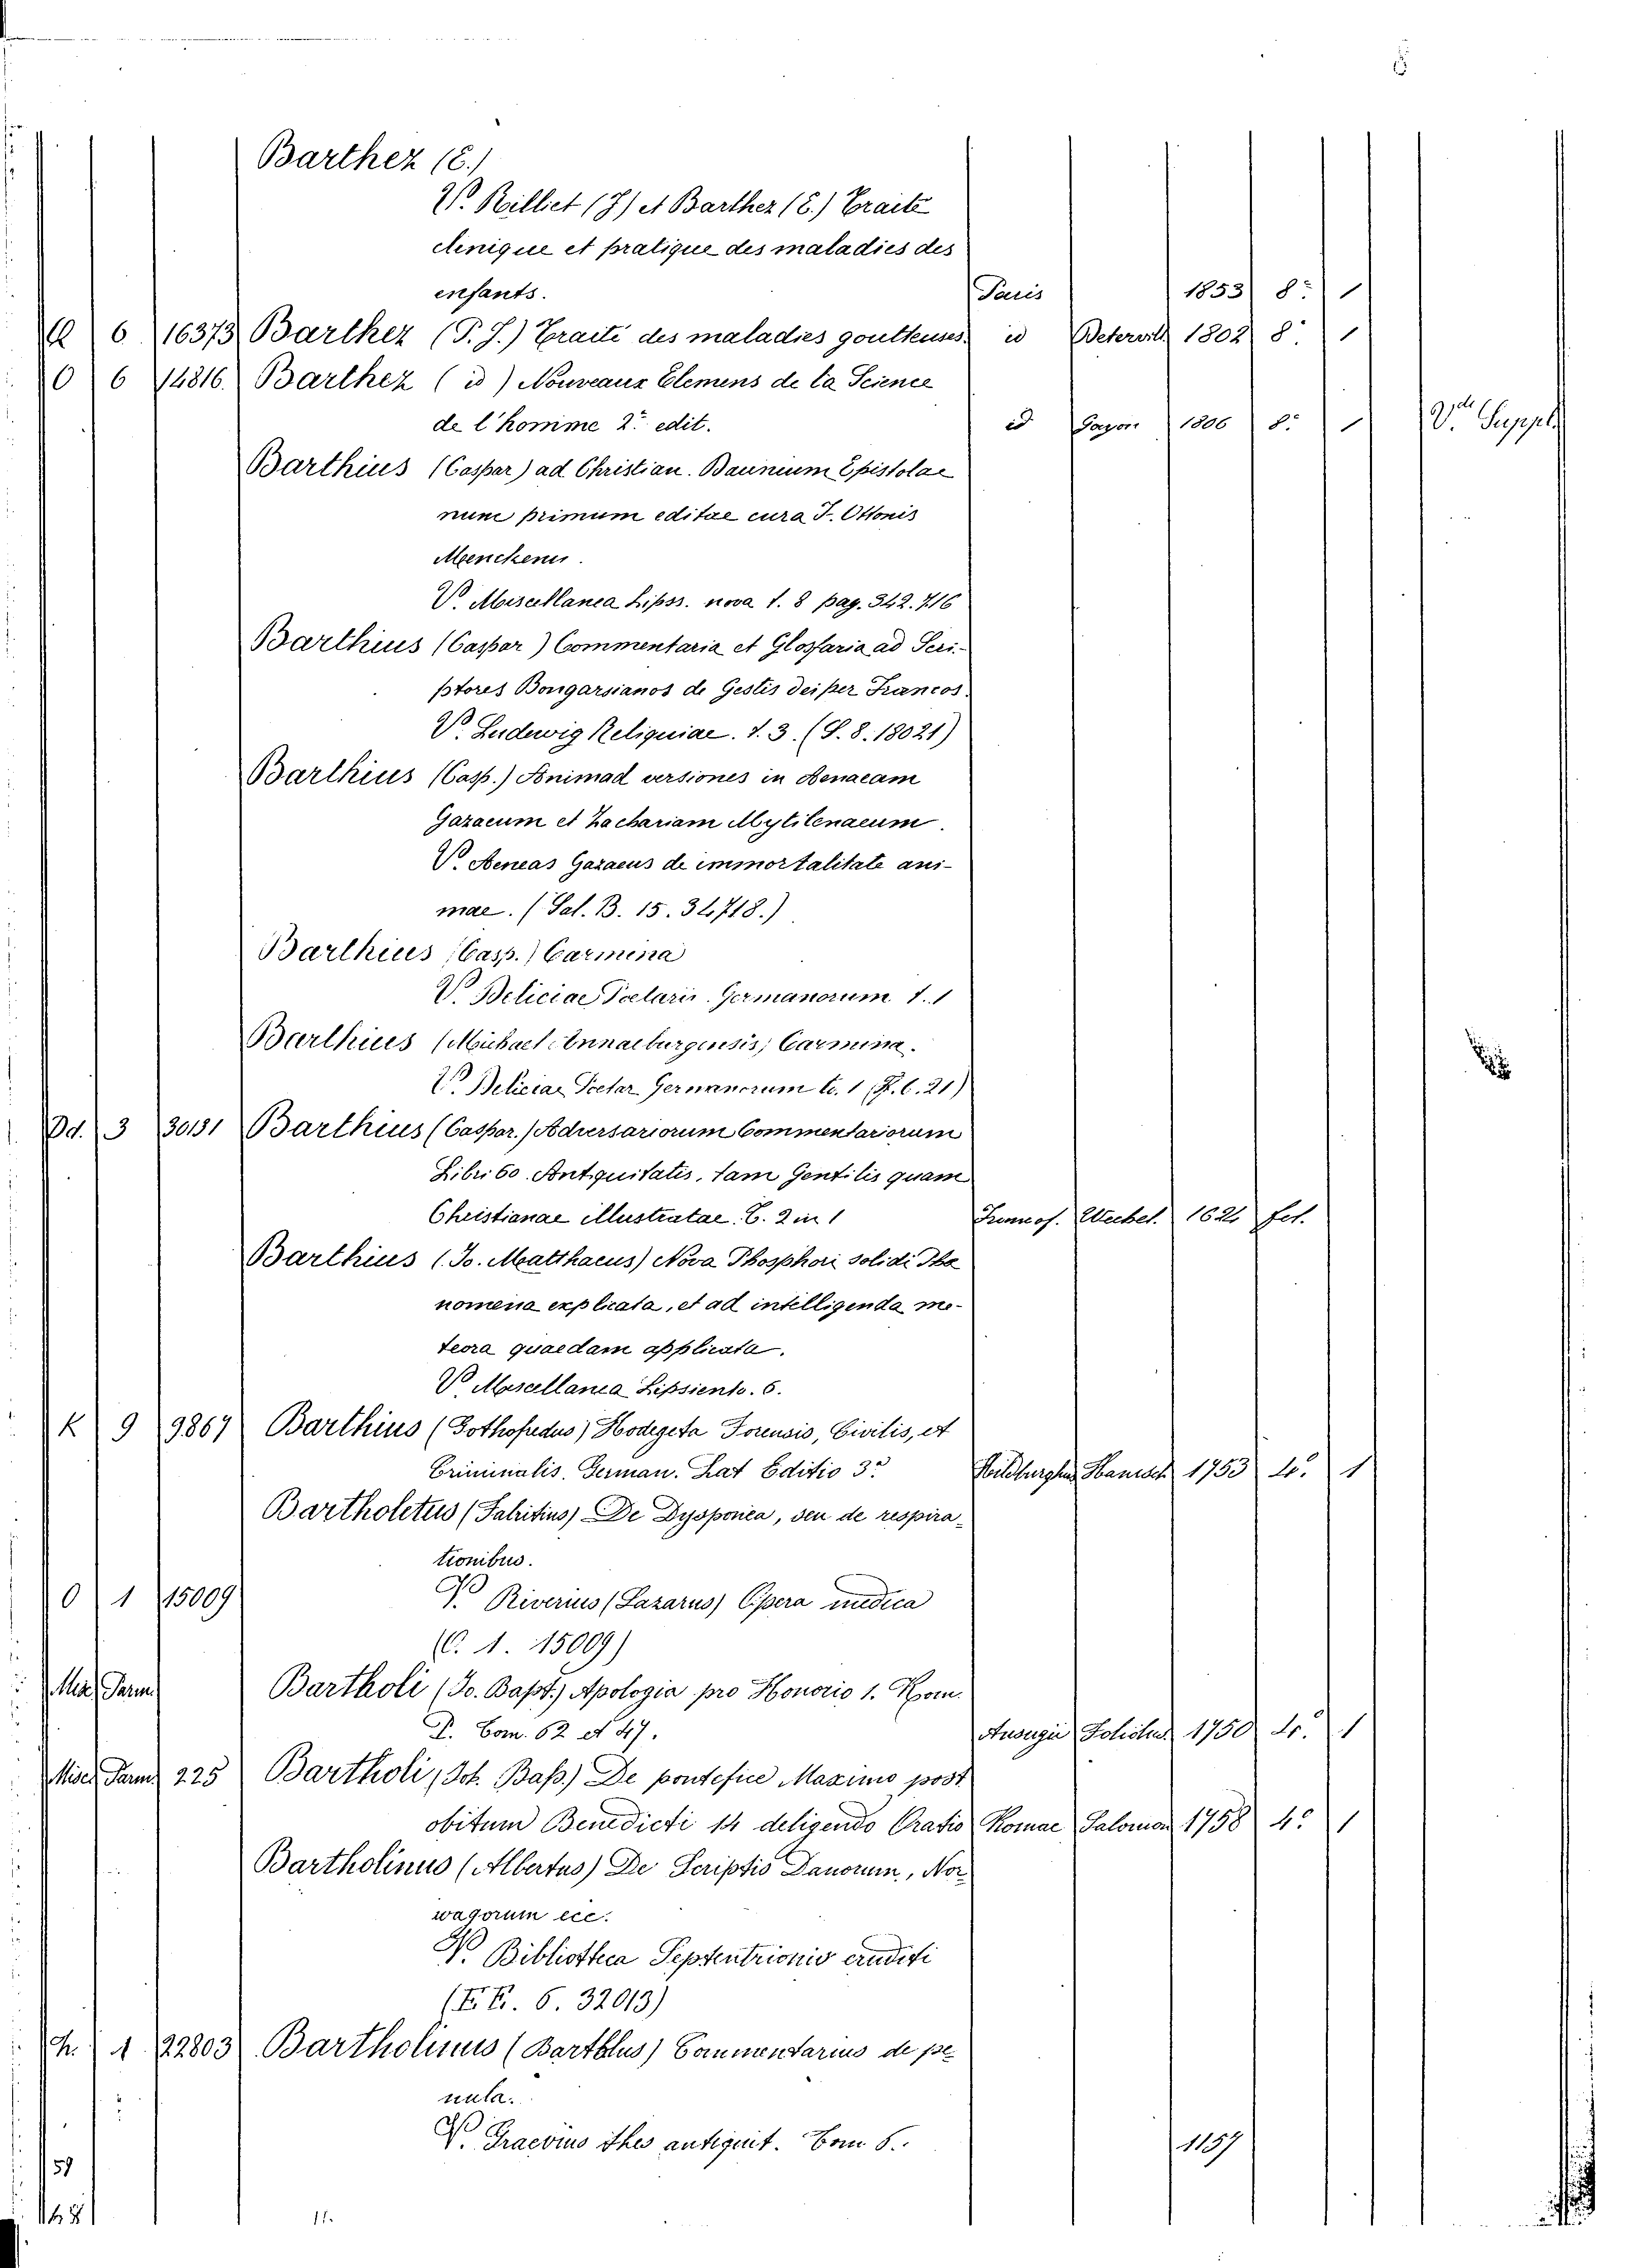 Barthez (E.)
V. Rilliet (F) et Barthez (E.) Traité
clinique et pratique des maladies des
enfants. Paris 1853 8° 1
Q 6 16373 Barthez (P. J.) Traité des maladies goutteuses. id Deterville 1802 8° 1
O 6 14816. Barthez (id) Nouveaux Elemens de la Science
de l'homme 2e edit. id 1806 8° 1 Vde Suppl
Barthius (Caspar) ad Christian. Daumium Epistolae
nunc primum editae cura F. Ottonis
Menckenii.
V. Miscellanea Lipss. nova t. 8 pag. 342. 716
Barthius (Caspar) Commentaria et Glossaria ad Scri-
ptores Bongarsianos de Gestis dei per Francos.
V. Ludewig Reliquiae. t. 3. (S. 8. 18021)
Barthius (Casp.) Animad versiones in Aenaeam
Gazaeum et Zachariam Mytilenaeum.
V. Aeneas Gazaeus de immortalitate ani-
mae. (Sal. B. 15. 34,718.)
Barthius (Casp.) Carmina
V. Deliciae Poetaru. Germanorum t. 1
Barthius (Michael Annaeburgensis) Carmina.
V. Deliciae Poetar Germanorum to. 1 (R. 6. 21)
Dd. 3 30131 Barthius (Caspar.) Adversariorum Commentariorum
Libri 60. Antquitatis, tam Gentilis quam
Christianae illustratae. T. 2 in 1 Francof. Wechel. 1624 fol.
Barthius (Jo. Matthaeus) Nova Phosphori solidi Phae
nomena explicata, et ad intelligenda me-
teora quaedam applicata.
V. Miscellanea Lipsien to. 6.
K 9 9867 Barthius (Gothofredus) Hodegeta Forensis, Civilis, et
Criminalis. German. Lat Editio 3a Hildburghus Hanisch 1753 4° 1
Bartholetus (Fabritius) De Dysponea, seu de respira-
tionibus.
O 1 15009 V. Riverius (Lazarus) Opera medica
(O. 1. 15009)
Misc Parm Bartholi (Jo. Bapt.) Apologia pro Honorio 1. Rom.
P. Tom. 62 et 47. Ausugii 1750 4° 1
Misc Parm 225 Bartholi (Joh. Bap.) De pontefice Maximo post
obitum Benedicti 14 deligendo Oratio Romae Salomon 1758 4° 1
Bartholinus (Albertus) De Scriptis Danorum, Nor-
wagorum ecc.
V. Bibliotheca Septentrionis eruditi
(E E. 6. 32013)
h. 1 22803 Bartholinus (Bartolus) Commentarius de pe-
nula.
V. Graevius Thes antiquit. Tom 6. 1157
59
11.